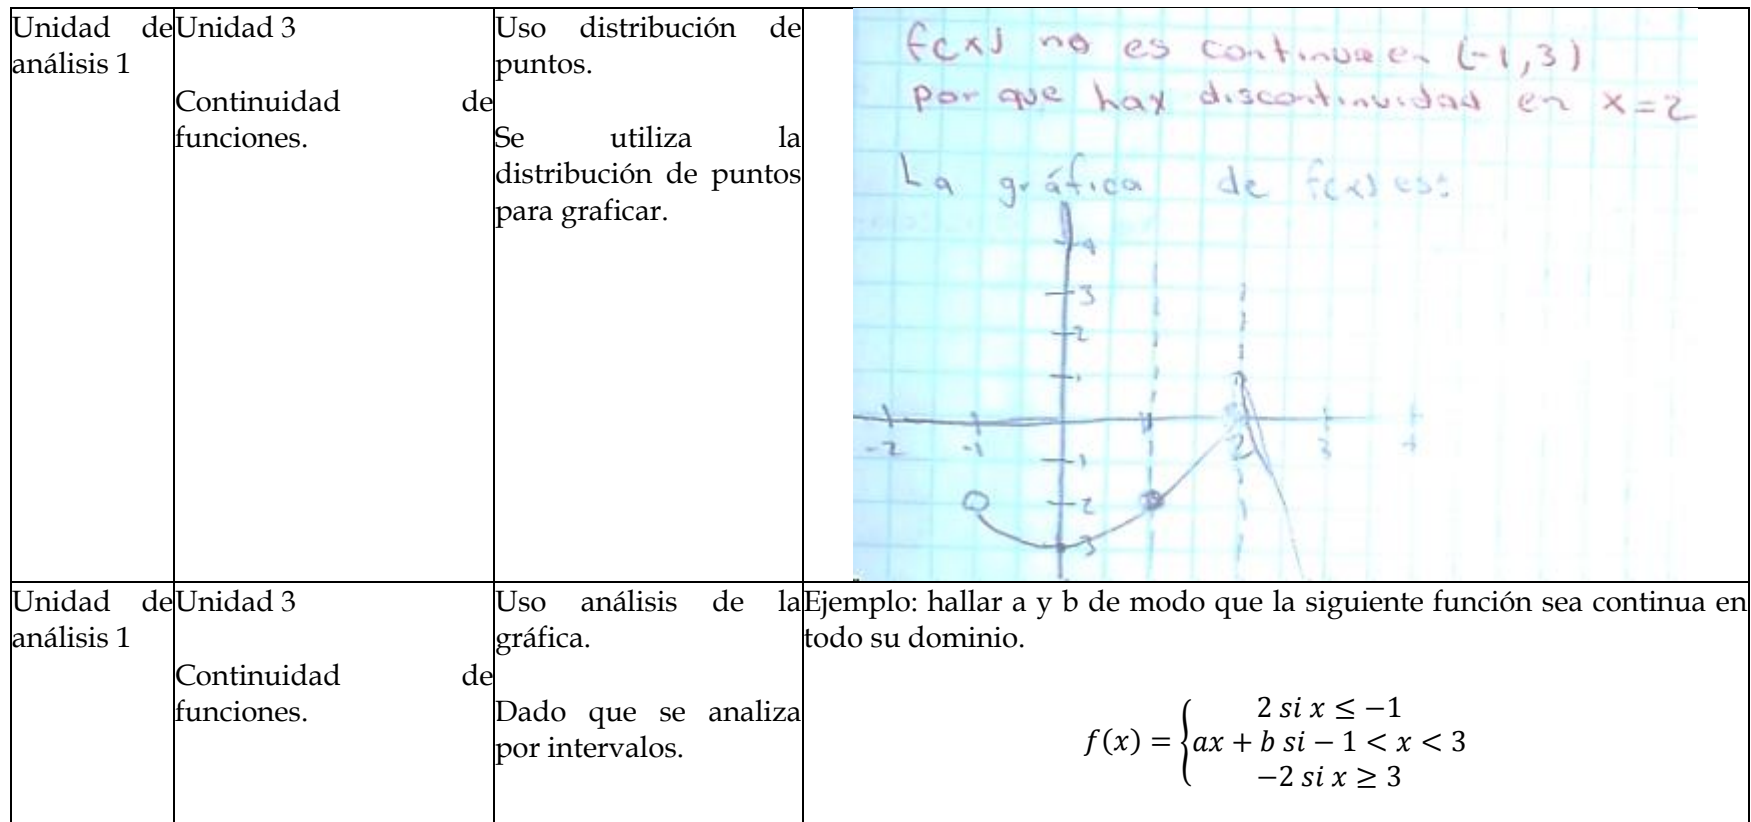 Unidad de
análisis 1
Unidad 3
Continuidad de
funciones.
Uso distribución de
puntos.
Se utiliza la
distribución de puntos
para graficar.
f(x) no es continua en (-1,3)
por que hay discontinuidad en x=2
La gráfica de f(x) es:
4
3
2
1
-2 -1 1 2 3 4
-1
-2
-3
Unidad de
análisis 1
Unidad 3
Continuidad de
funciones.
Uso análisis de la
gráfica.
Dado que se analiza
por intervalos.
Ejemplo: hallar a y b de modo que la siguiente función sea continua en
todo su dominio.
2 si x ≤ −1
f(x) = { ax + b si − 1 < x < 3
−2 si x ≥ 3